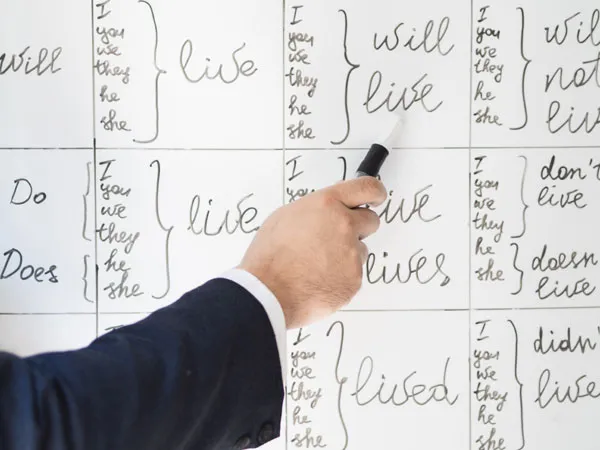 Will
I
you
we
they
he
she
live
I
you
we
they
he
she
will
live
I
you
we
they
he
she
will
not
live
Do
Does
I
you
we
they
he
she
live
I
you
we
they
live
lives
I
you
we
they
he
she
don't
live
doesn
live
I
you
we
they
he
she
lived
I
you
we
they
he
she
didn'
live